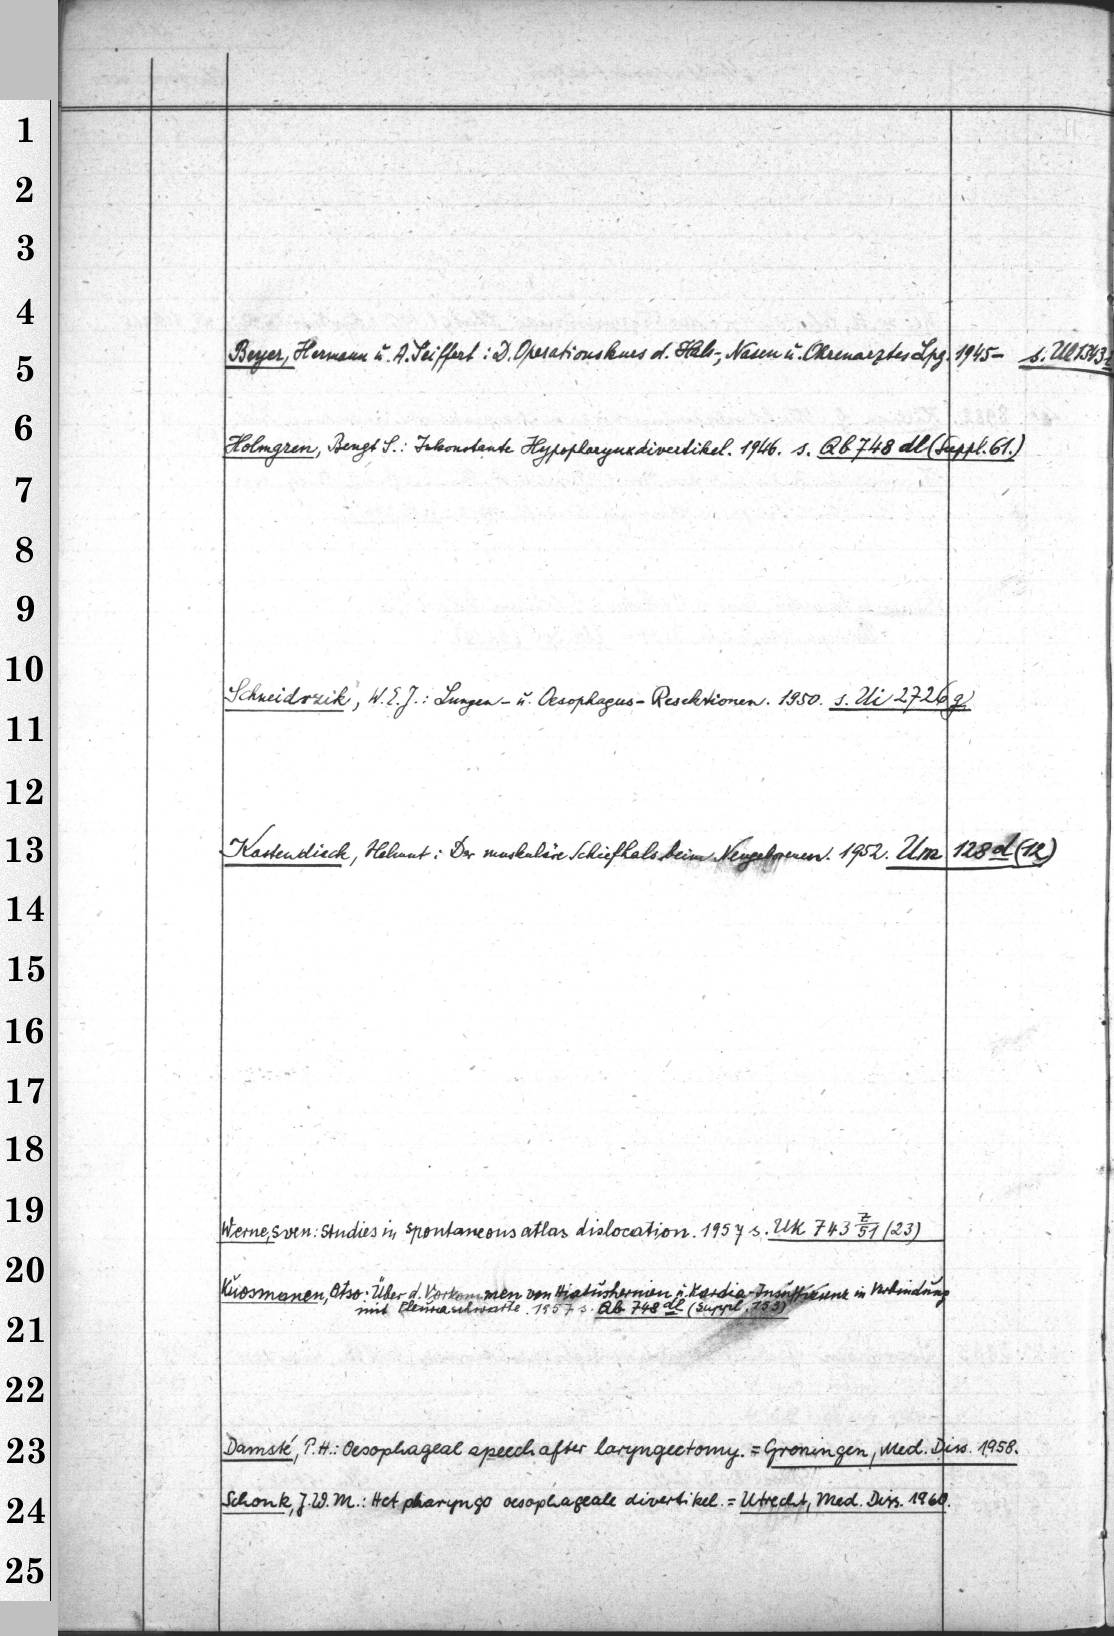 1
2
3
4
Beyer, Hermann u. A. Seiffert: D. Operationskurs d. Hals-, Nasen u. Ohrenarztes Lpg. 1945- s. Ul 1543
5
6
Holmgren, Bengt S.: Inkonstante Hypopharynxdivertikel. 1946. s. Qb 748 dl (Suppl. 61.)
7
8
9
10
Schneidrzik, W. E. J.: Lungen- u. Oesophagus-Resektionen. 1950. s. Ui 2726 g
11
12
13 Kastendieck, Helmut: Der muskuläre Schiefhals beim Neugeborenen. 1952. Um 128 d (12)
14
15
16
17
18
19
Werne, Sven: Studies in spontaneous atlas dislocation. 1957 s. Uk 743 Z/51 (23)
20
Kuosmanen, Otso: Über d. Vorkommen von Hiatushernien u. Kardia-Insuffizienz in Verbindung
mit Pleuraschwarte. 1957 s. Qb 748 dl (Suppl. 153)
21
22
23 Damsté, P. H.: Oesophageal speech after laryngectomy. = Groningen, Med. Diss. 1958.
24 Schonk, J. W. M.: Het pharyngo oesophageale divertikel. = Utrecht, Med. Diss. 1960.
25